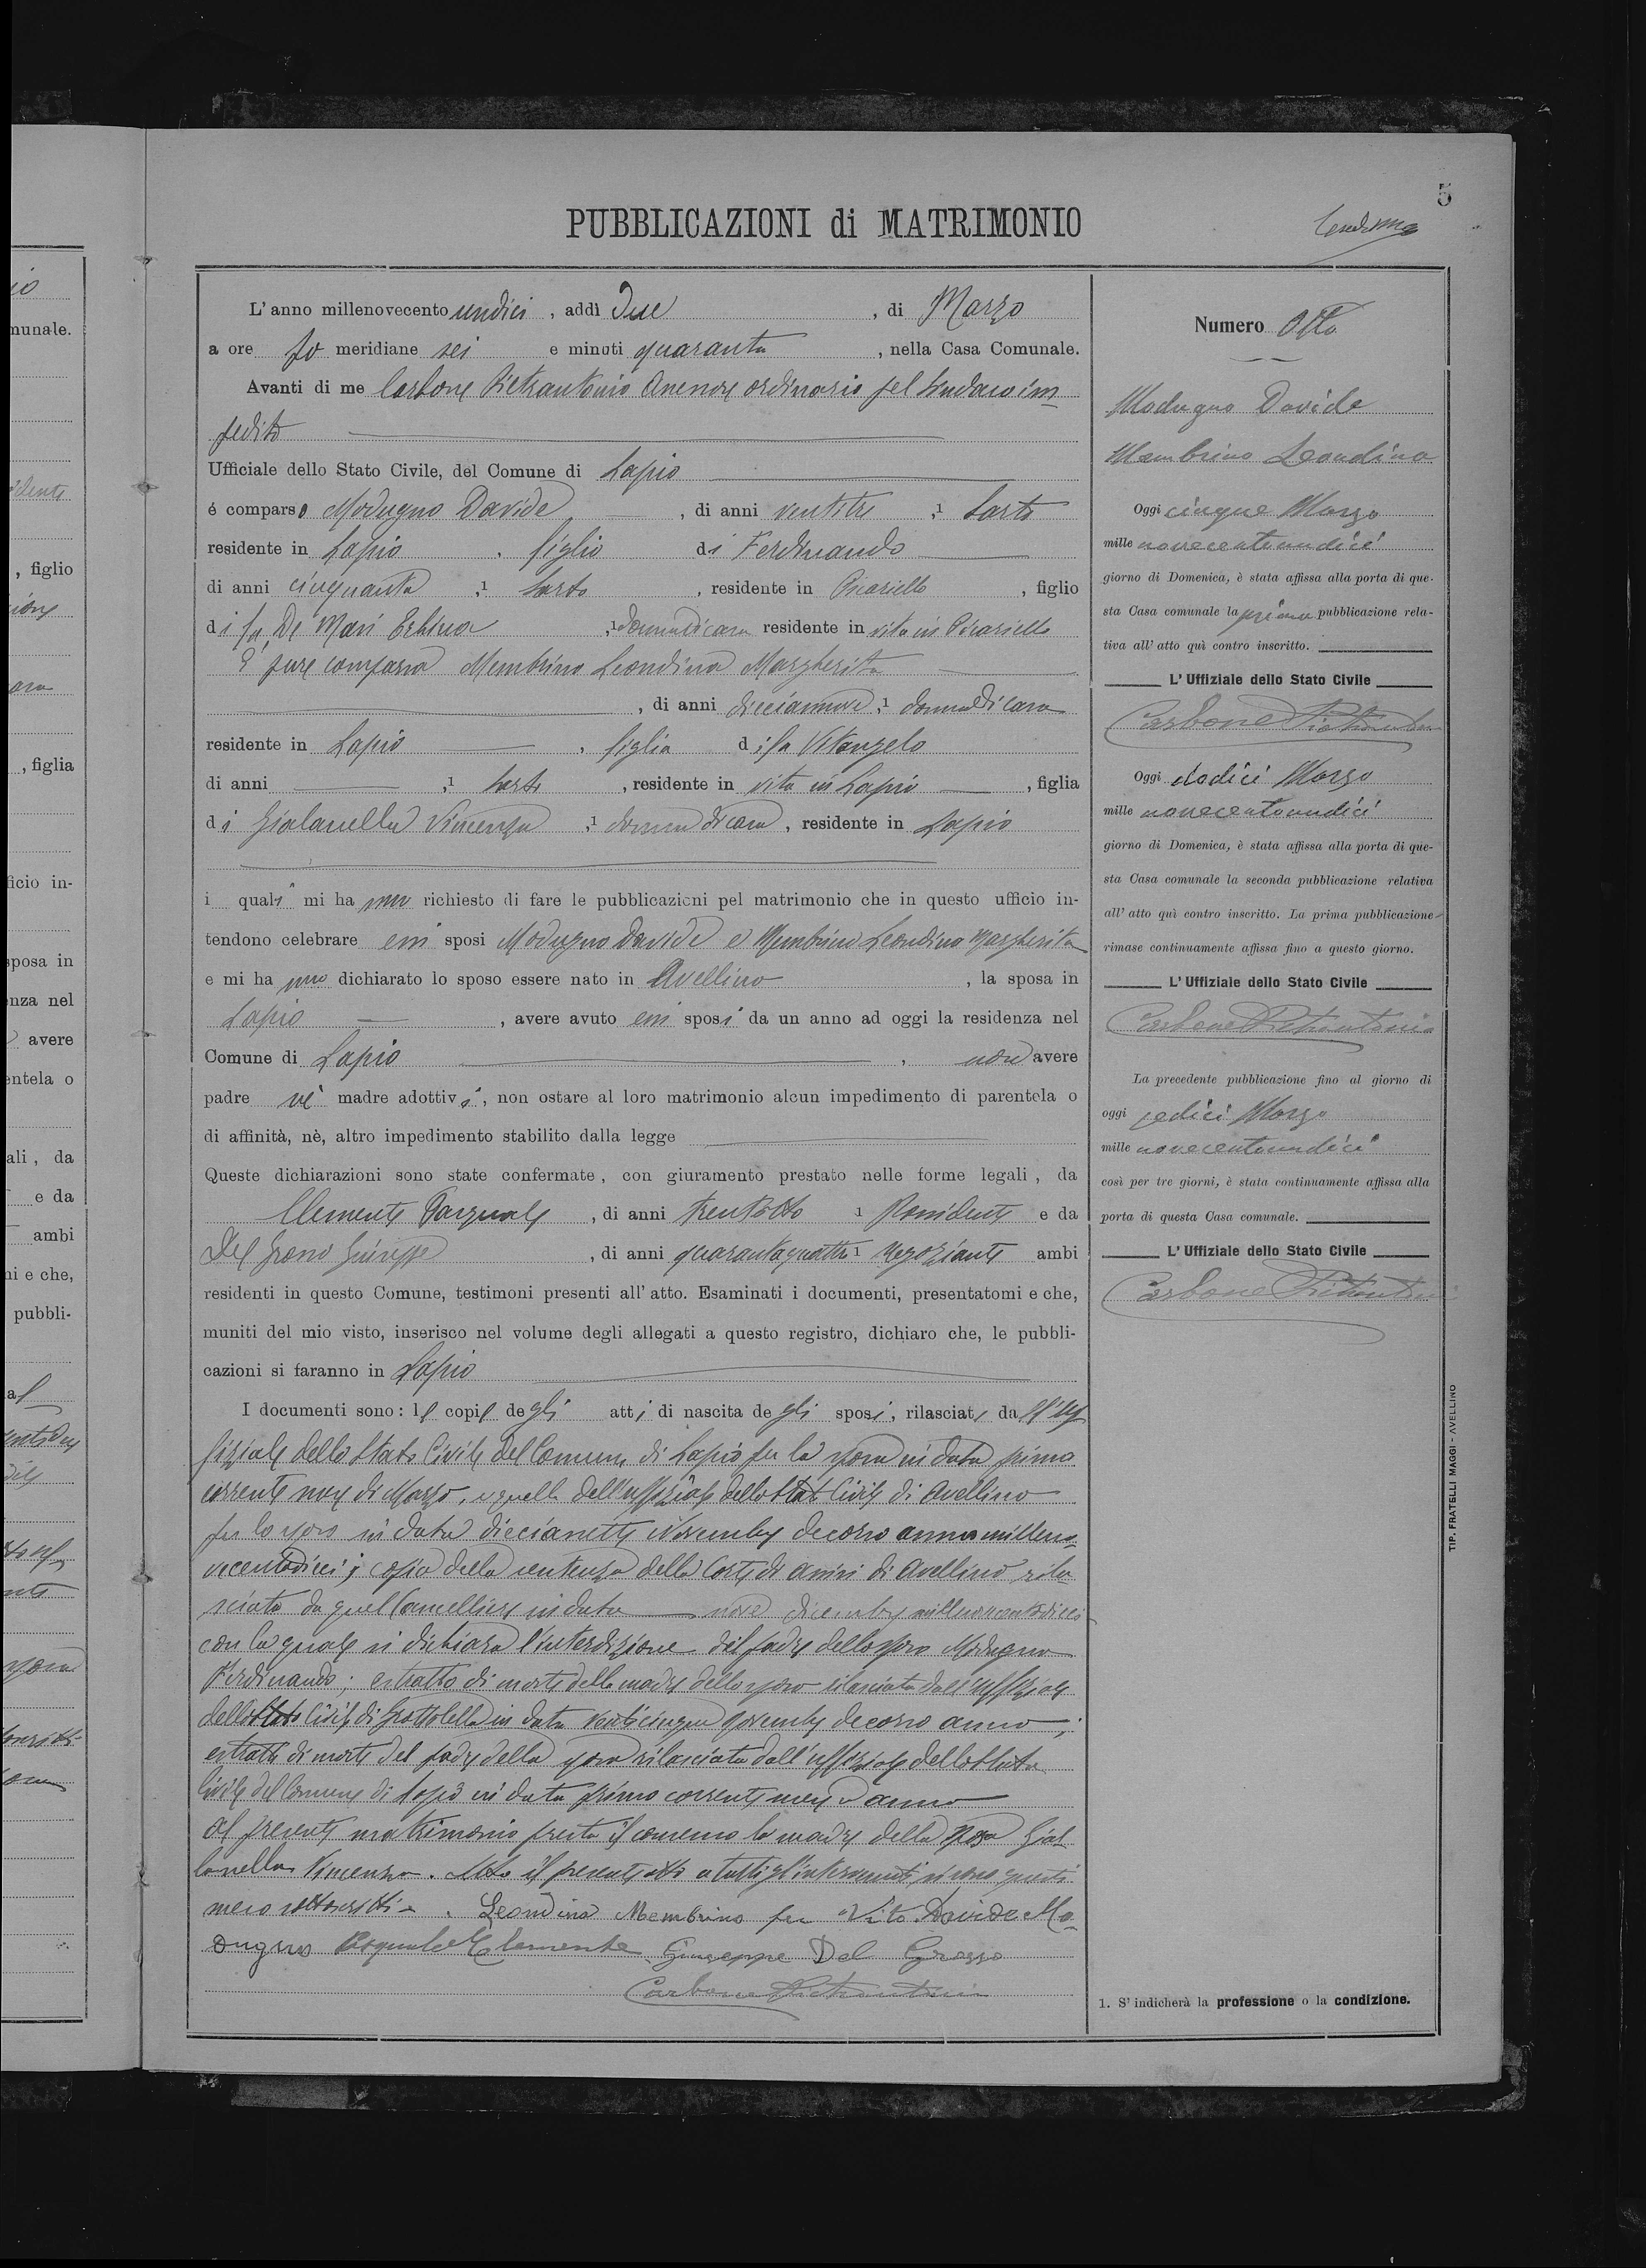 5
PUBBLICAZIONI di MATRIMONIO
L'anno millenovecento undici, addì Due, di Marzo
a ore po meridiane sei e minuti quaranta, nella Casa Comunale.
Avanti di me Carbone Pietrantonio Assessore ordinario pel Sindaco im=
pedito
Ufficiale dello Stato Civile, del Comune di Lapio
é comparso Modugno Davide, di anni ventitre, 1 Sarto
residente in Lapio, figlio di Ferdinando
di anni cinquanta, 1 Sarto, residente in Picariello, figlio
di fu De Mari, 1 donna di casa residente in vita in Picariello
E' pure comparsa Membrino Leondina Margherita
, di anni diciannove, 1 donna di casa
residente in Lapio, figlia di fu Vitangelo
di anni, 1 Sarto, residente in vita in Lapio, figlia
di Gialanella Vincenza, 1 donna di casa, residente in Lapio
i quali mi hanno richiesto di fare le pubblicazioni pel matrimonio che in questo ufficio in-
tendono celebrare essi sposi Modugno Davide e Membrino Leondina Margherita
e mi hanno dichiarato lo sposo essere nato in Avellino, la sposa in
Lapio, avere avuto essi sposi da un anno ad oggi la residenza nel
Comune di Lapio, non avere
padre nè madre adottivi, non ostare al loro matrimonio alcun impedimento di parentela o
di affinità, nè, altro impedimento stabilito dalla legge
Queste dichiarazioni sono state confermate, con giuramento prestato nelle forme legali, da
Clemente Pasquale, di anni trentotto 1 Possidente e da
Del Grosso Giuseppe, di anni quarantaquattro 1 negoziante ambi
residenti in questo Comune, testimoni presenti all'atto. Esaminati i documenti, presentatomi e che,
muniti del mio visto, inserisco nel volume degli allegati a questo registro, dichiaro che, le pubbli-
cazioni si faranno in Lapio
I documenti sono: le copie degli atti di nascita degli sposi, rilasciate dall'Uf
fiziale dello Stato Civile del Comune di Lapio per la sposa in data primo
corrente mese di Marzo, e quella dell'uffiziale dello Stato Civile di Avellino
per lo sposo in data diecisette Novembre decorso anno milleno=
vecentodieci; copia della sentenza della Corte di Assisi di Avellino rila
sciata da quel Cancelliere in data nove dicembre millenovecentodieci
con la quale si dichiara l'interdizione del padre dello sposo Modugno
Ferdinando; estratto di morte della madre dello sposo rilasciata dall'uffiziale
dello Stato Civile di Grottolella in data venticinque Novembre decorso anno;
estratto di morte del padre della sposa rilasciata dall'uffiziale dello Stato
Civile del Comune di Lapio in data primo corrente mese ed anno
Al presente matrimonio presta il consenso la madre della sposa Gial
lanella Vincenza. Letto il presente atto a tutti gl'intervenuti si sono questi
meco sottoscritti. Leondina Membrino fu Vito Davide Mo=
dugno Pasquale Clemente Giuseppe Del Grosso
Carbone Pietrantonio
Numero Otto
Modugno Davide
Membrino Leondina
Oggi cinque Marzo
mille novecentoundici
giorno di Domenica, è stata affissa alla porta di que-
sta Casa comunale la prima pubblicazione rela-
tiva all'atto quì contro inscritto.
L'Uffiziale dello Stato Civile
Carbone Pietrantonio
Oggi dodici Marzo
mille novecentoundici
giorno di Domenica, è stata affissa alla porta di que-
sta Casa comunale la seconda pubblicazione relativa
all'atto quì contro inscritto. La prima pubblicazione
rimase continuamente affissa fino a questo giorno.
L'Uffiziale dello Stato Civile
Carbone Pietrantonio
La precedente pubblicazione fino al giorno di
oggi sedici Marzo
mille novecentoundici
così per tre giorni, è stata continuamente affissa alla
porta di questa Casa comunale.
L'Uffiziale dello Stato Civile
Carbone Pietrantonio
1. S'indicherà la professione o la condizione.
TIP. FRATELLI MAGGI - AVELLINO